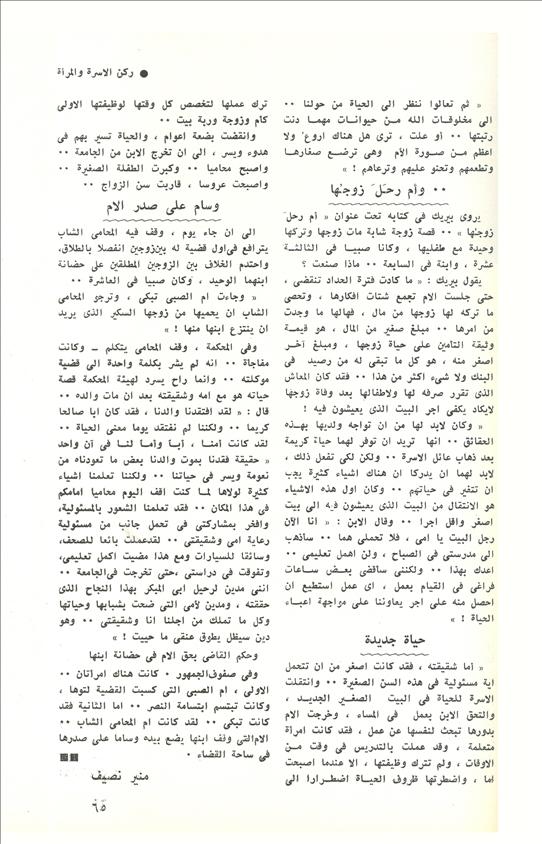 ● ركن الاسرة والمرأة
« ثم تعالوا ننظر الى الحياة من حولنا ٠٠
الى مخلوقات الله مـن حيوانات مهمـا دنت
رتبتها ٠٠ أو علت ، ترى هل هناك اروع ولا
اعظم مـن صـورة الأم وهى ترضـع صغارهـا
وتطعمهم وتحنو عليهم وترعاهم ! »
٠٠ وأم رحل زوجها
يروى بيريك فى كتابه تحت عنوان « أم رحل
زوجها » ٠٠ قصة زوجة شابة مات زوجها وتركها
وحيدة مع طفليها ، وكانا صبيـا فى الثالثـة
عشرة ، وابنة فى السابعة ٠٠ ماذا صنعت ؟
يقول بيريك : « ما كادت فترة الحداد تنقضى ،
حتى جلست الام تجمع شتات افكارها ، وتحصى
ما تركه لها زوجها من مال ، فهالها ما وجدت
من امرها ٠٠ مبلغ صغير من المال ، هو قيمـة
وثيقة التأمين على حياة زوجها ، ومبلغ آخـر
اصغر منه ، هو كل ما تبقى له من رصيد فى
البنك ولا شىء اكثر من هذا ٠٠ فقد كان المعاش
الذى تقرر صرفه لها ولاطفالها بعد وفاة زوجها
لايكاد يكفى اجر البيت الذى يعيشون فيه !
« وكان لابد لها من ان تواجه ولديها بهـذه
الحقائق ٠٠ انها تريد ان توفر لهما حياة كريمة
بعد ذهاب عائل الاسرة ٠٠ ولكن لكى تفعل ذلك ،
لابد لهما ان يدركا ان هناك اشياء كثيرة يجب
ان تتغير فى حياتهم ٠٠ وكان اول هذه الاشياء
هو الانتقال من البيت الذى يعيشون فيه الى بيت
اصغر واقل اجرا ٠٠ وقال الابن : « انا الآن
رجل البيت يا امى ، فلا تحملى هما ٠٠ ساذهب
الى مدرستى فى الصباح ، ولن اهمل تعليمى ٠٠
اعدك بهذا ٠٠ ولكننى ساقضى بعـض ساعات
فراغى فى القيام بعمل ، اى عمل استطيع ان
احصل منه على اجر يعاوننا على مواجهة اعباء
الحياة ! »
حياة جديدة
« أما شقيقته ، فقد كانت اصغر من ان تتحمل
اية مسئولية فى هذه السن الصغيرة ٠٠ وانتقلت
الاسرة للحياة فى البيت الصغـير الجديـد ،
والتحق الابن بعمل فى المساء ، وخرجت الام
بدورها تبحث لنفسها عن عمل ، فقد كانت امرأة
متعلمة ، وقد عملت بالتدريس فى وقت مـن
الاوقات ، ولم تترك وظيفتها ، الا عندما اصبحت
أما ، واضطرتها ظروف الحيـاة اضطـرارا الى
ترك عملها لتخصص كل وقتها لوظيفتها الاولى
كام وزوجة وربة بيت ٠٠
وانقضت بضعة اعوام ، والحياة تسير بهم فى
هدوء ويسر ، الى ان تخرج الابن من الجامعة ٠٠
واصبح محاميا ٠٠ وكبرت الطفلة الصغيرة ٠٠
واصبحت عروسا ، قاربت سن الزواج ٠٠
وسام على صدر الام
الى ان جاء يوم ، وقف فيه المحامى الشاب
يترافع فىاول قضية له بينزوجين انفصلا بالطلاق،
واحتدم الخلاف بين الزوجين المطلقين على حضانة
ابنهما الوحيد ، وكان صبيا فى العاشرة ٠٠
« وجاءت ام الصبى تبكى ، وترجو المحامى
الشاب ان يحميها من زوجها السكير الذى يريد
ان ينتزع ابنها منها ! »
وفى المحكمة ، وقف المحامى يتكلم ــ وكانت
مفاجأة ٠٠ انه لم يشر بكلمة واحدة الى قضية
موكلته ٠٠ وانما راح يسرد لهيئة المحكمة قصة
حياته هو مع امه وشقيقته بعد ان مات والده ٠٠
قال : « لقد افتقدنا والدنا ، فقد كان ابا صالحا
كريما ٠٠ ولكننا لم نفتقد يوما معنى الحياة ٠٠
لقد كانت امنـا ، أبـا وأمـا لنـا فى آن واحد
« حقيقة فقدنا بموت والدنا بعض ما تعودناه من
نعومة ويسر فى حياتنا ٠٠ ولكننا تعلمنا اشياء
كثيرة لولاها لمـا كنت اقف اليوم محاميا امامكم
فى هذا المكان ٠٠ فقد تعلمنا الشعور بالمسئولية،
وافخر بمشاركتى فى تحمل جانب من مسئولية
رعاية امى وشقيقتى ٠٠ لقدعملت بائعا للصحف،
وسائقا للسيارات ومع هذا مضيت اكمل تعليمى،
وتفوقت فى دراستى ،حتى تخرجت فىالجامعة ٠٠
اننى مدين لرحيل ابى المبكر بهذا النجاح الذى
حققته ، ومدين لأمى التى ضحت بشبابها وحياتها
وكل ما تملك من اجلنا انا وشقيقتى ٠٠ وهو
دين سيظل يطوق عنقى ما حييت ! »
وحكم القاضى بحق الام فى حضانة ابنها
وفى صفوفالجمهور ٠ كانت هناك امرأتان ٠٠
الاولى ، ام الصبى التى كسبت القضية لتوها ،
وكانت تبتسم ابتسامة النصر ٠٠ اما الثانية فقد
كانت تبكى ٠٠ لقد كانت ام المحامى الشاب ٠٠
الامالتى وقف ابنها يضع بيده وساما على صدرها
فى ساحة القضاء ٠
منير نصيف
٦٥